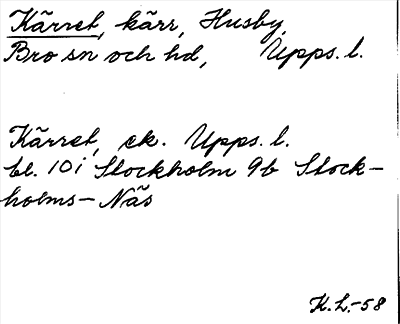 Kärret, kärr, Husby,
Bro sn och hd, Upps. l.
Kärret, ek. Upps. l.
bl. 10 i Stockholm 9b Stock-
holms-Näs
K.L.-58